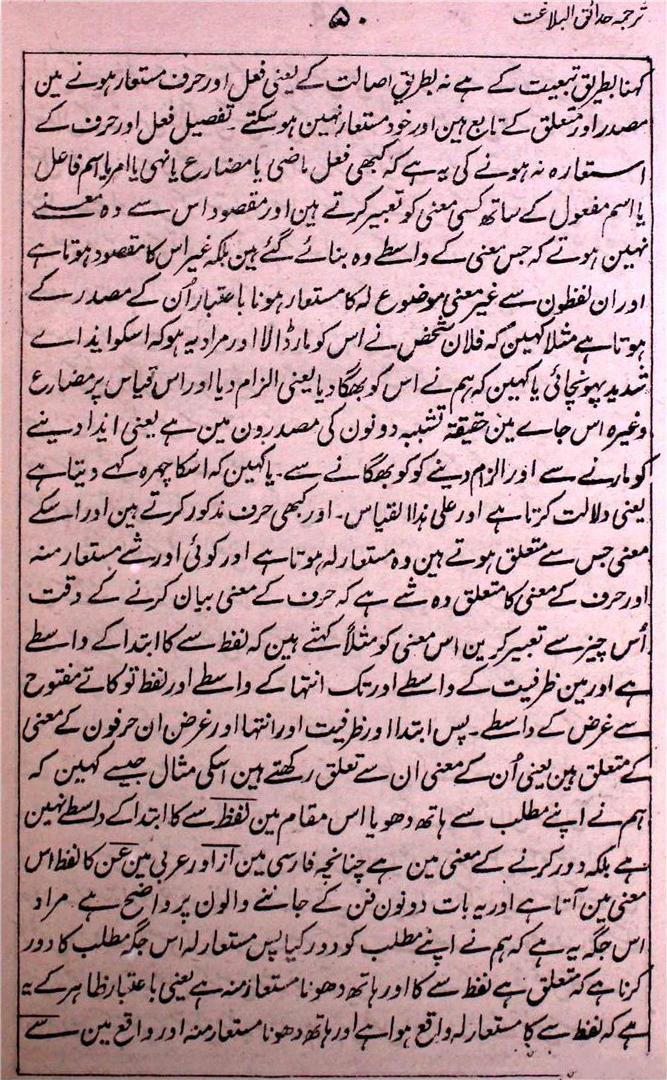 ترجمہ حدائق البلاغت
۵۰
کہنا بطریق تبعیت کے ہے نہ بطریق اصالت کے یعنی فعل اور حرف مستعار ہونے مین
مصدر اور متعلق کے تابع ہین اور خود مستعار نہین ہو سکتے۔ تفصیل فعل اور حرف کے
استعارہ نہ ہونے کی یہ ہے کہ کبھی فعل ماضی یا مضارع یا نہی یا امر یا اسم فاعل
یا اسم مفعول کے ساتھ کسی معنی کو تعبیر کرتے ہین اور مقصود اس سے وہ معنے
نہین ہوتے کہ جس معنی کے واسطے وہ بنائے گئے ہین بلکہ غیر اس کا مقصود ہوتا ہے
اور ان لفظون سے غیر معنی موضوع لہ کا مستعار ہونا باعتبار اُن کے مصدر کے
ہوتا ہے مثلا کہین کہ فلان شخص نے اس کو مار ڈالا اور مراد یہ ہو کہ اسکو ایذاے
شدید پہونچائی یا کہین کہ ہم نے اس کو بھگا دیا یعنی الزام دیا اور اس قیاس پر مضارع
وغیرہ اس جاے مین حقیقۃ تشبیہ دونون کی مصدرون مین ہے یعنی ایذا دینے
کو مارنے سے اور الزم دینے کو کو بھگانے سے۔ یا کہین کہ اسکا چہرہ کہے دیتا ہے
یعنی دلالت کرتا ہے اور علی ہذا القیاس۔ اور کبھی حرف مذکور کرتے ہین اور اسکے
معنی جس سے متعلق ہوتے ہین وہ مستعار لہ ہوتا ہے اور کوئی اور شے مستعار منہ
اور حرف کے معنی کا متعلق وہ شے ہے کہ حرف کے معنی بیان کرنے کے وقت
اُس چیز سے تعبیر کرین اس معنی کو مثلاً کہتے ہین کہ لفظ سے کا ابتدا کے واسطے
ہے اور مین ظرفیت کے واسطے اور تک انتہا کے واسطے اور لفظ تو کا تے مفتوح
سے غرض کے واسطے۔ پس ابتدا اور ظرفیت اور انتہا اور غرض ان حرفون کے معنی
کے متعلق ہین یعنی اُن کے معنی ان سے تعلق رکھتے ہین اسکی مثال جیسے کہین کہ
ہم نے اپنے مطلب سے ہاتھ دھویا اس مقام مین لفظ سے کا ابتدا کے واسطے نہین
ہے بلکہ دور کرنے کے معنی مین ہے چنانچہ فارسی مین از اور عربی مین عن کا لفظ اس
معنی مین آتا ہے اور یہ بات دونون فن کے جاننے والون پر واضح ہے۔ مراد
اس جگہ یہ ہے کہ ہم نے اپنے مطلب کو دور کیا پس مستعار لہ اس جگہ مطلب کا دور
کرنا ہے کہ متعلق ہے لفظ سے کا اور ہاتھ دھونا مستعار منہ ہے یعنی باعتبار ظاہر کے یہ
ہے کہ لفظ سے کا مستعار لہ واقع ہوا ہے اور ہاتھ دھونا مستعار منہ اور واقع مین سے